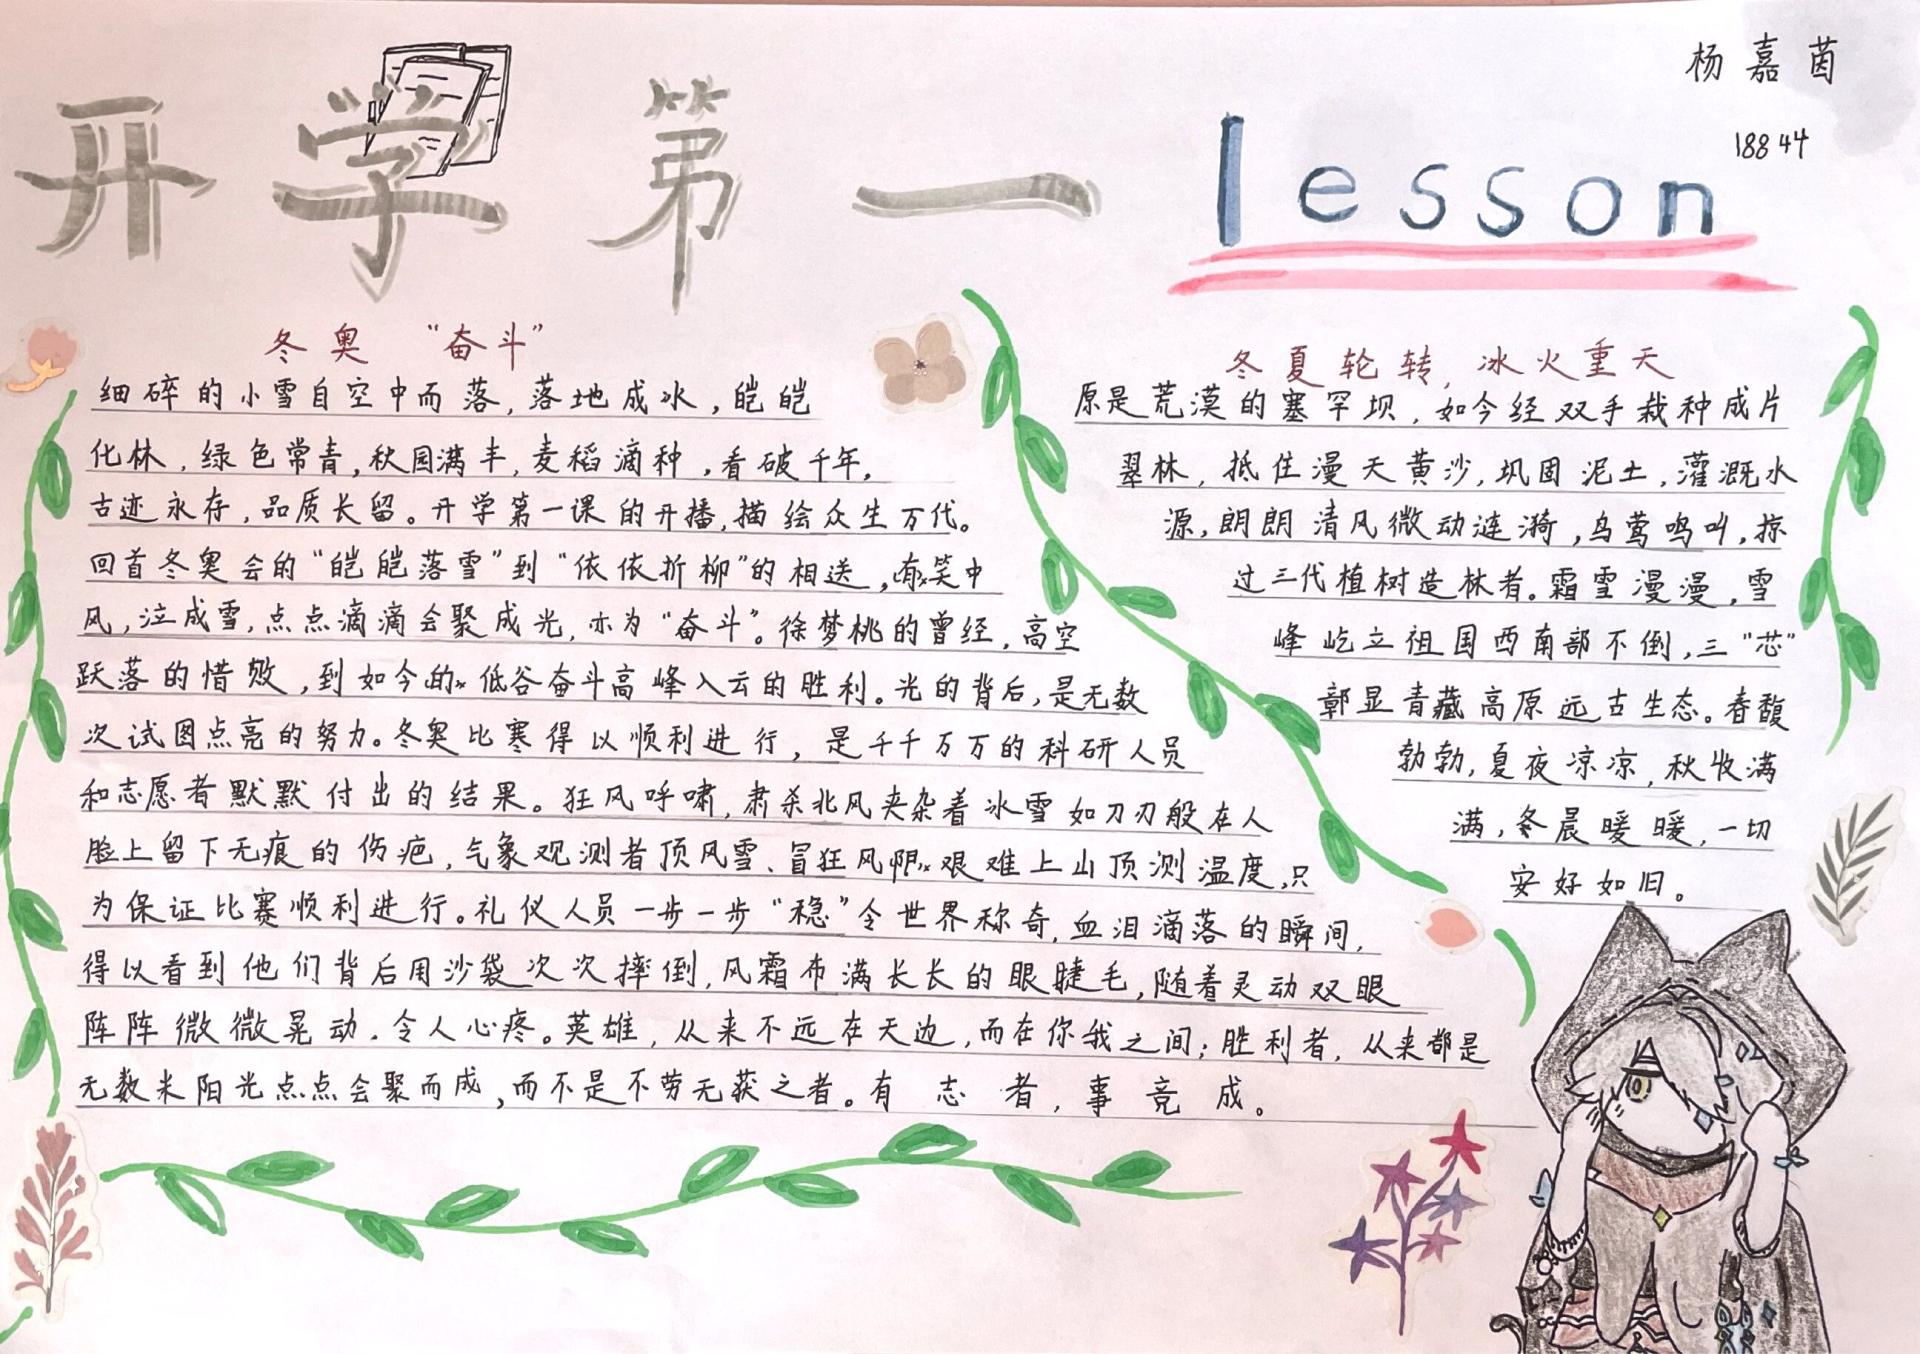 杨嘉茵
18844
开学第一lesson
冬奥 “奋斗”
细碎的小雪自空中而落，落地成冰，皑皑
化林，绿色常青，秋园满丰，麦稻滴种，看破千年，
古迹永存，品质长留。开学第一课的开播，描绘众生万代。
回首冬奥会的“皑皑落雪”到“依依折柳”的相送，笑中
风，泣成雪，点点滴滴会聚成光，亦为“奋斗”。徐梦桃的曾经，高空
跃落的惜败，到如今的低谷奋斗高峰入云的胜利。光的背后，是无数
次试图点亮的努力。冬奥比寒得以顺利进行，是千千万万的科研人员
和志愿者默默付出的结果。狂风呼啸，肃杀北风夹杂着冰雪如刀刃般在人
脸上留下无痕的伤疤，气象观测者顶风雪、冒狂风艰难上山顶测温度，只
为保证比赛顺利进行。礼仪人员一步一步“稳”令世界称奇，血泪滴落的瞬间，
得以看到他们背后用沙袋次次摔倒，风霜布满长长的眼睫毛，随着灵动双眼
阵阵微微晃动．令人心疼。英雄，从来不远在天边，而在你我之间；胜利者，从来都是
无数米阳光点点会聚而成，而不是不劳无获之者。有志者，事竞成。
冬夏轮转，冰火重天
原是荒漠的塞罕坝，如今经双手栽种成片
翠林，抵住漫天黄沙，巩固泥土，灌溉水
源，朗朗清风微动涟漪，鸟莺鸣叫，掠
过三代植树造林者。霜雪漫漫，雪
峰屹立祖国西南部不倒，三“芯”
彰显青藏高原远古生态。春馥
勃勃，夏夜凉凉，秋收满
满，冬晨暖暖，一切
安好如旧。